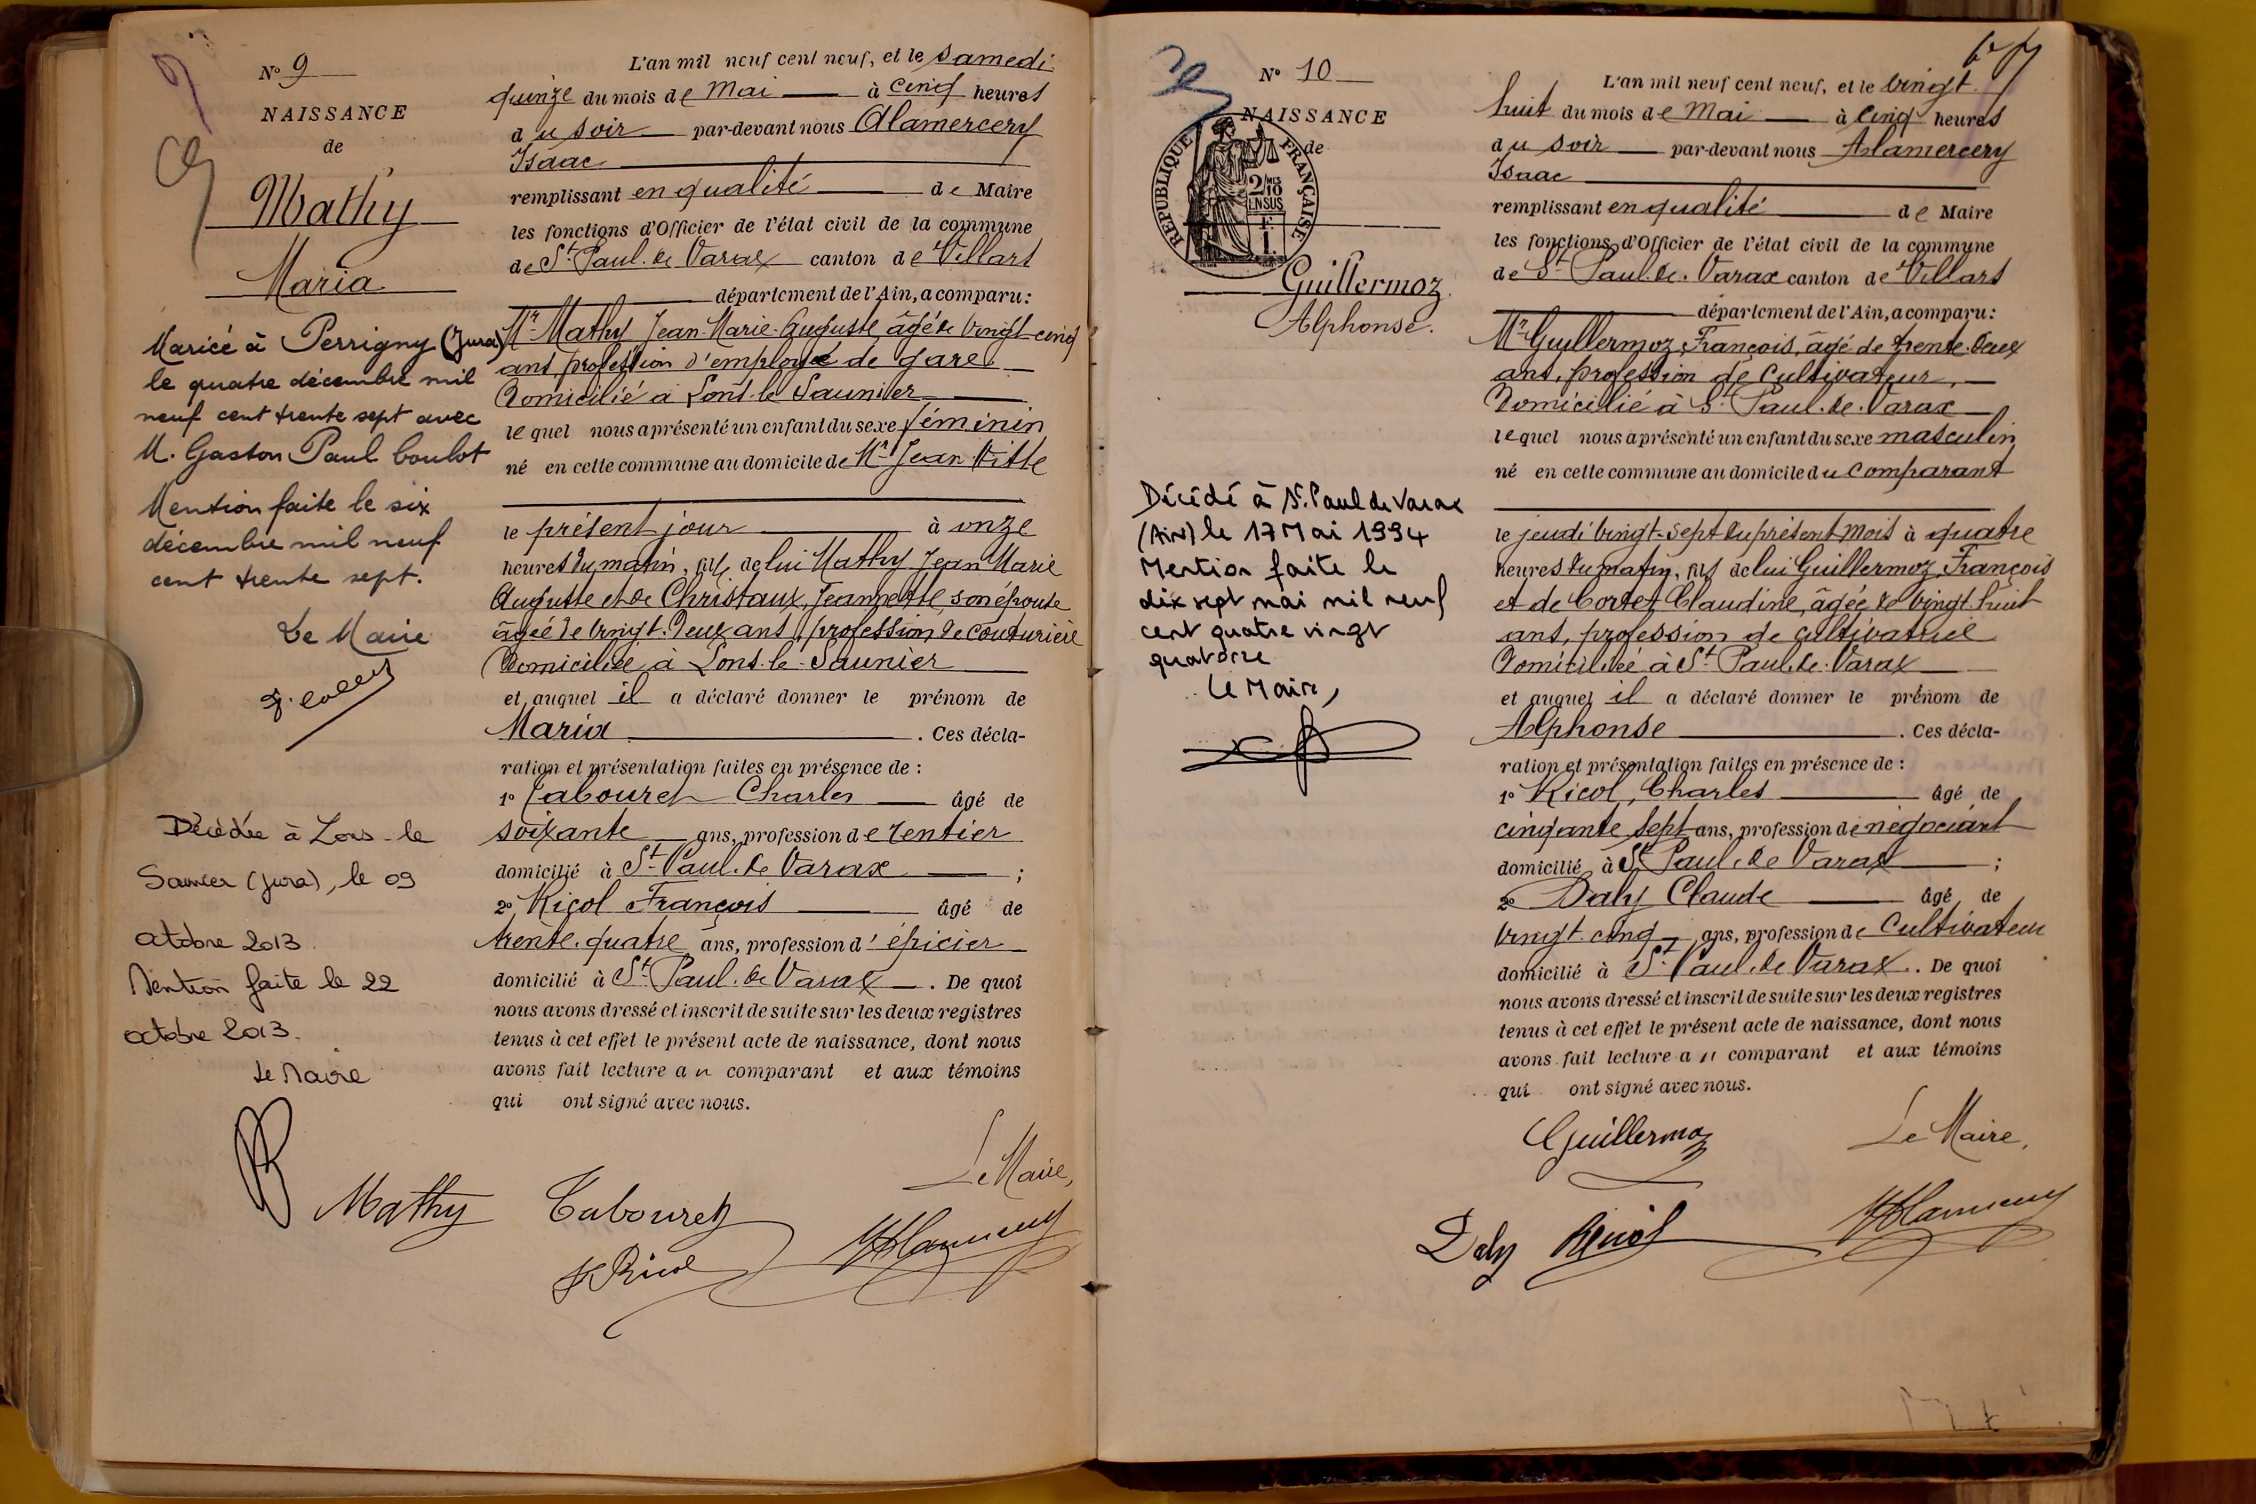 N° 9
NAISSANCE
de
Mathy
Maria
Mariée à Perrigny (Jura)
le quatre décembre mil
neuf cent trente sept avec
M. Gaston Paul Coulot
Mention faite le six
décembre mil neuf
cent trente sept.
Le Maire
Décédée à Lons-le
Saunier (Jura), le 09
octobre 2013.
Mention faite le 22
octobre 2013.
Le Maire
L'an mil neuf cent neuf, et le Samedi
quinze du mois de Mai à cinq heures
du soir par-devant nous Alamercery
Isaac
remplissant en qualité de Maire
les fonctions d'Officier de l'état civil de la commune
de St Paul. de Varax canton de Villars
département de l'Ain, a comparu:
Mr Mathy Jean-Marie-Auguste âgé de vingt-cinq
ans, profession d'employé de gare
Domicilié à Lons-le-Saunier
lequel nous a présenté un enfant du sexe féminin
né en cette commune au domicile de Mr Jean Vitte
le présent jour à onze
heures du matin, fille de lui Mathy Jean Marie
Auguste et de Christaux, Jeannette, son épouse
âgée de vingt-deux ans, profession de couturière
Domiciliée à Lons-le-Saunier
et auquel il a déclaré donner le prénom de
Maria. Ces décla-
ration et présentation faites en présence de :
1° Tabouret Charles âgé de
soixante ans, profession de rentier
domicilié à St Paul. de Varax ;
2° Ricol François âgé de
trente-quatre ans, profession d'épicier
domicilié à St Paul. de Varax. De quoi
nous avons dressé et inscrit de suite sur les deux registres
tenus à cet effet le présent acte de naissance, dont nous
avons fait lecture au comparant et aux témoins
qui ont signé avec nous.
Le Maire,
Mathy Tabouret
N° 10
NAISSANCE
de
RÉPUBLIQUE FRANÇAISE
2/10 EN SUS
Guillermoz
Alphonse.
Décédé à St. Paul de Varax
(Ain) le 17 Mai 1994
Mention faite le
dix sept mai mil neuf
cent quatre vingt
quatorze
Le Maire,
L'an mil neuf cent neuf, et le vingt
huit du mois de Mai à cinq heures
du soir par-devant nous Alamercery
Isaac
remplissant en qualité de Maire
les fonctions d'Officier de l'état civil de la commune
de St Paul. de. Varax canton de Villars
département de l'Ain, a comparu:
Mr Guillermoz, François, âgé de trente-deux
ans, profession de cultivateur,
Domicilié à St Paul. de. Varax
lequel nous a présenté un enfant du sexe masculin
né en cette commune au domicile du comparant
le jeudi vingt-sept du présent mois à quatre
heures du matin, fils de lui Guillermoz, François
et de Cortet Claudine, âgée de vingt-huit
ans, profession de cultivatrice
Domiciliée à St Paul. de. Varax
et auquel il a déclaré donner le prénom de
Alphonse. Ces décla-
ration et présentation faites en présence de :
1° Ricol, Charles âgé de
cinquante sept ans, profession de négociant
domicilié à St Paul. de Varax ;
2° Daly Claude âgé de
vingt-cinq ans, profession de cultivateur
domicilié à St Paul. de Varax. De quoi
nous avons dressé et inscrit de suite sur les deux registres
tenus à cet effet le présent acte de naissance, dont nous
avons fait lecture au comparant et aux témoins
qui ont signé avec nous.
Guillermoz Le Maire,
Daly Ricol